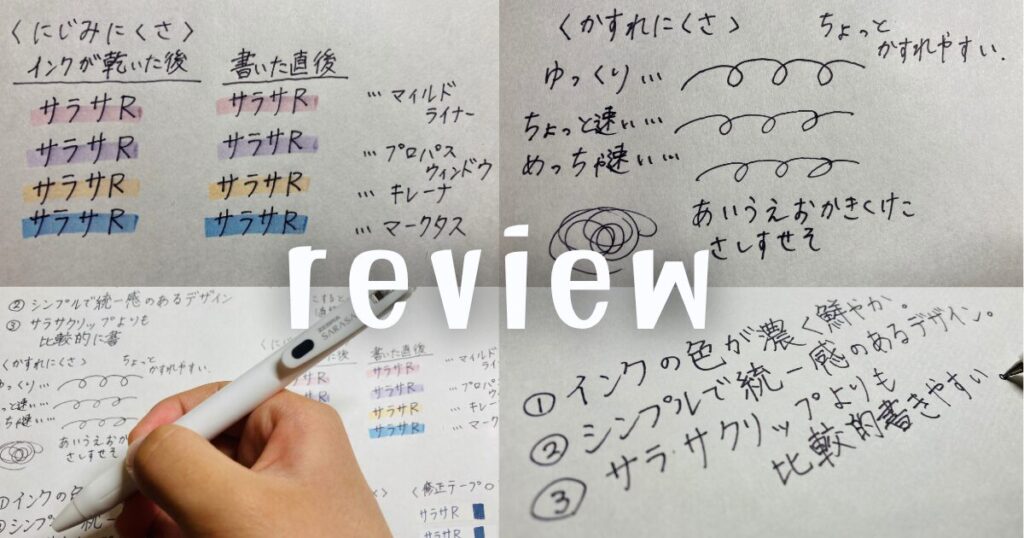 〈にじみにくさ〉
インクが乾いた後 書いた直後
サラサR サラサR … マイルド
ライナー
サラサR サラサR … プロパス
ウィンドウ
サラサR サラサR … キレーナ
サラサR サラサR … マークタス
〈かすれにくさ〉 ちょっと
かすれやすい.
ゆっくり…
ちょっと速い…
めっちゃ速い…
あいうえおかきくけこ
さしすせそ
review
② シンプルで統一感のあるデザイン
③ サラサクリップよりも
比較的に書
〈かすれにくさ〉 ちょっと
かすれやすい.
ゆっくり…
っと速い…
ちゃ速い…
あいうえおか
さしすせそ
① インクの色
② シンプル 統一
こすると
SARASA
た後 書いた直後
サラサR … マイルド
ライ
サラサR サラサR … プロパ
ウィ
サラサR サラサR … キレー
サラサR サラサR … マーク
〈修正テープ
サラサR
サラサR
① インクの色が濃く鮮やか。
② シンプルで統一感のあるデザイン。
③ サラサクリップよりも
比較的書きやすい.